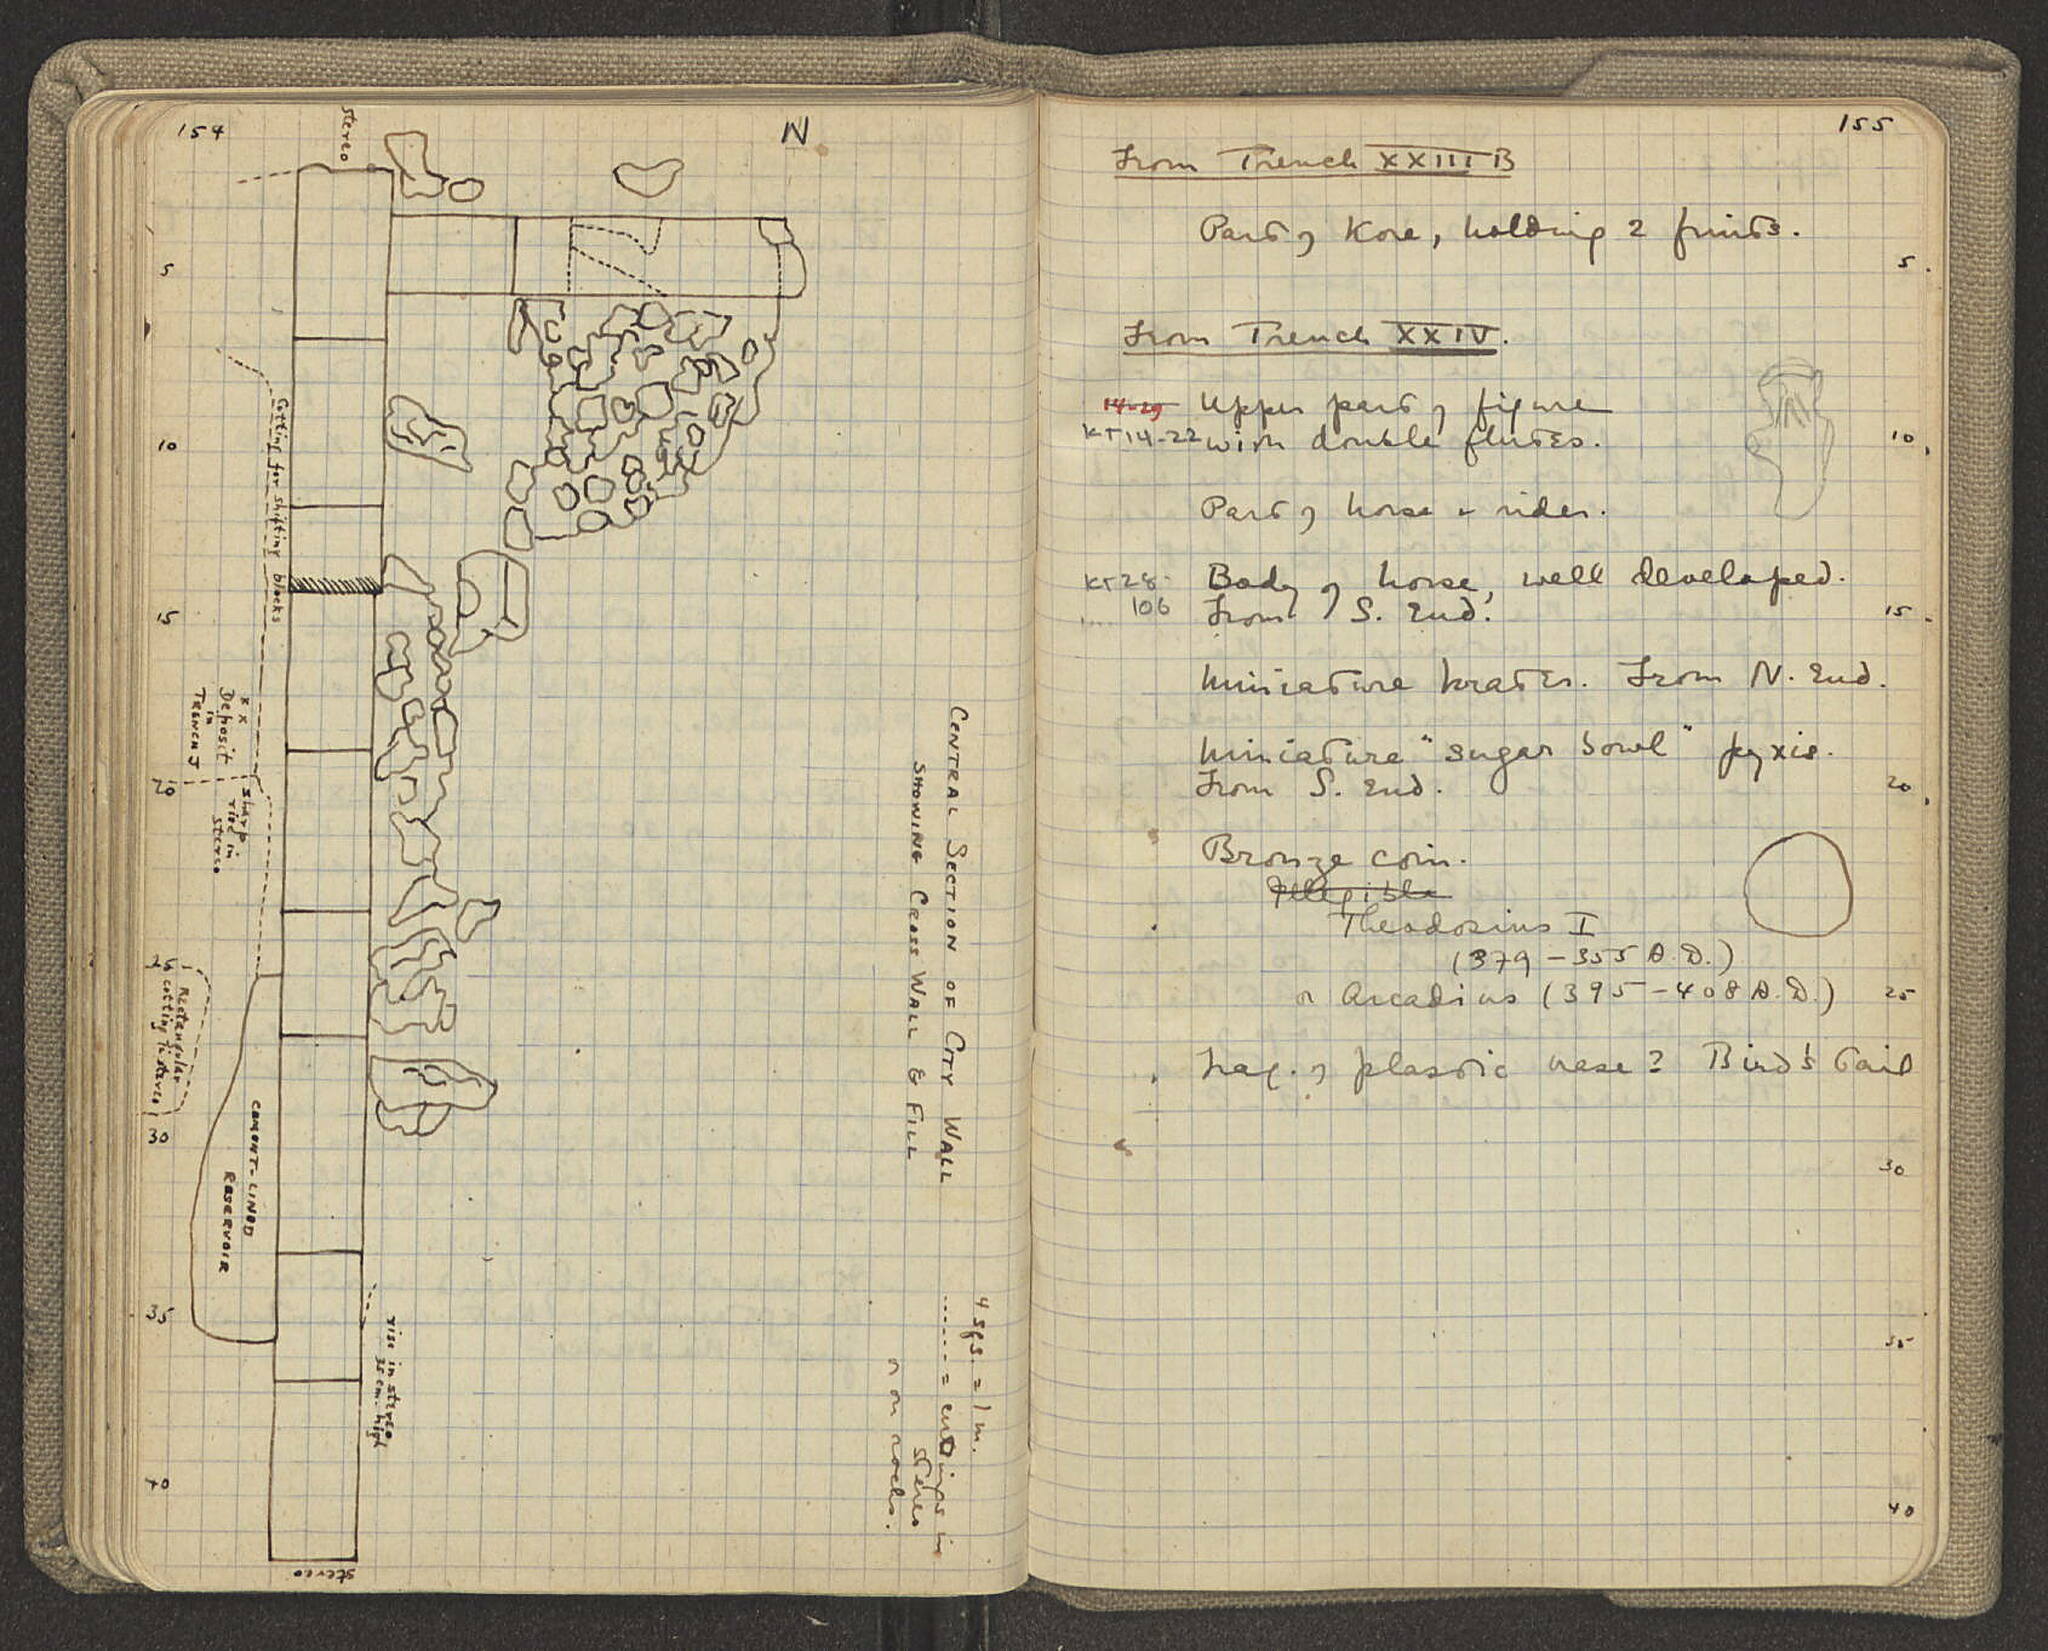 154
N
stereo
5
10
15
20
25
30
35
40
Cutting for shifting blocks
x x
Deposit
in
TRENCH J
sharp
rise in
stereo
Rectangular
cutting in stereo
CEMENT-LINED
RESERVOIR
rise in stereo
35 cm. high
stereo
CENTRAL SECTION OF CITY WALL
SHOWING CROSS WALL & FILL
4 sqs. = 1 m.
------ = cuttings in
stereo
or on rocks.
155
From Trench XXIII B
Part of Kore, holding 2 fruits.
5
From Trench XXIV.
14-29 Upper part of figure
KT14-22 with double flutes.
10
Part of horse & rider.
KT28- Body of horse, well developed.
106 From S. End.
15
Miniature krater. From N. End.
Miniature "sugar bowl" pyxis.
From S. End.
20
Bronze coin.
Illegible
Theodosius I
(379-355 A.D.)
or Arcadius (395-408 A.D.)
25
Frag. of plastic vase? Bird's tail
30
35
40